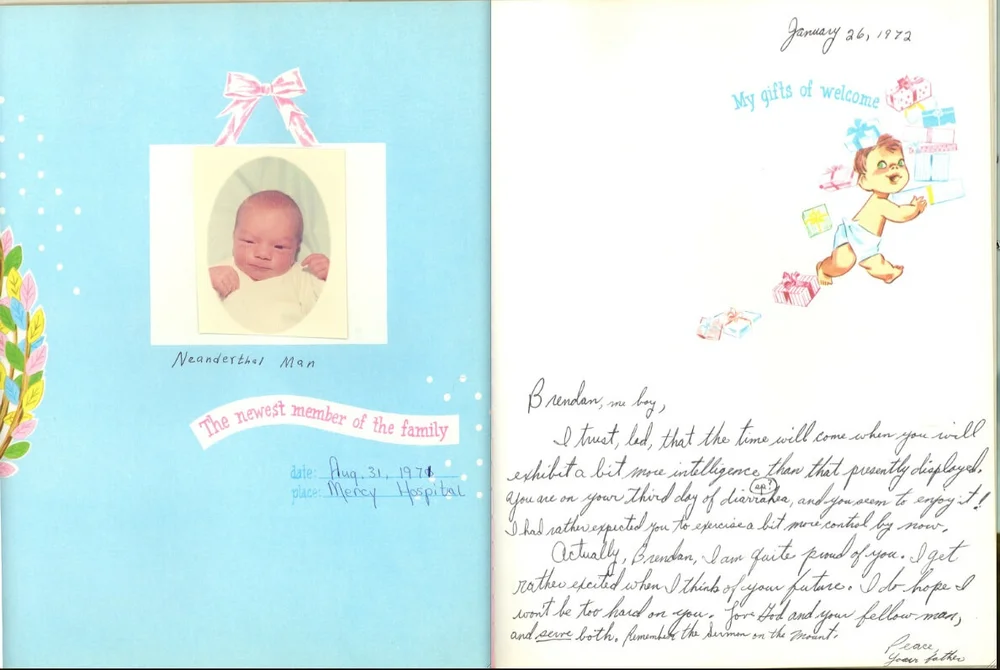 Neanderthal Man
The newest member of the family
date: Aug. 31, 1971
place: Mercy Hospital
January 26, 1972
My gifts of welcome
Brendan, me boy,
I trust, lad, that the time will come when you will
exhibit a bit more intelligence than that presently displayed.
You are on your third day of diarrahea, and you seem to enjoy it!
sp?
I had rather expected you to exercise a bit more control by now.
Actually, Brendan, I am quite proud of you. I get
rather excited when I think of your future. I do hope I
won't be too hard on you. Love God and your fellow man,
and serve both. Remember the Sermon on the Mount.
Peace,
Your father